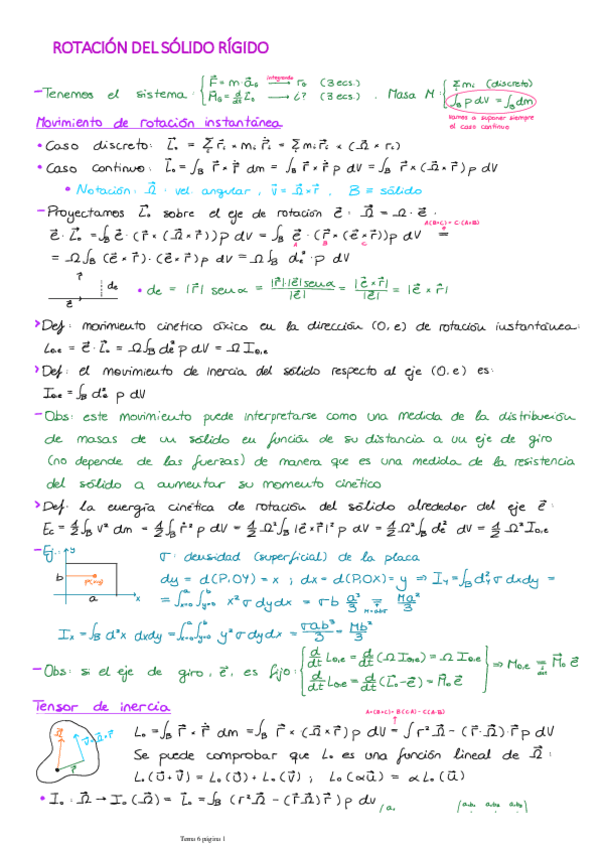 ROTACIÓN DEL SÓLIDO RÍGIDO
- Tenemos el sistema: { F⃗ = m·a⃗₀ —integrando→ r₀ (3 ecs.) . Masa M: { Σmᵢ (discreto)
M⃗₀ = d/dt L⃗₀ → ¿? (3 ecs.) ∫_B ρ dV = ∫_B dm
vamos a suponer siempre
el caso continuo
Movimiento de rotación instantánea
• Caso discreto: L⃗₀ = Σ r⃗ᵢ × mᵢ ṙ⃗ᵢ = Σ mᵢ r⃗ᵢ × (Ω⃗ × rᵢ)
• Caso continuo: L⃗₀ = ∫_B r⃗ × ṙ⃗ dm = ∫_B r⃗ × ṙ⃗ ρ dV = ∫_B r⃗ × (Ω⃗ × r⃗) ρ dV
• Notación: Ω⃗: vel. angular, v⃗ = Ω⃗ × r⃗, B ≡ sólido
- Proyectamos L⃗₀ sobre el eje de rotación e⃗: Ω⃗ = Ω·e⃗:
A(B×C) = C·(A×B)
e⃗·L⃗₀ = ∫_B e⃗·(r⃗ × (Ω⃗ × r⃗))ρ dV = Ω∫_B e⃗·(r⃗ × (e⃗ × r⃗))ρ dV =
A B C
= Ω∫_B (e⃗ × r⃗)·(e⃗ × r⃗)ρ dV = Ω∫_B dₑ²·ρ dV
• dₑ = |r⃗| senα = |r⃗|·|e⃗|senα / |e⃗| = |e⃗ × r⃗| / |e⃗| = |e⃗ × r⃗|
r⃗ dₑ e⃗
> Def: movimiento cinético áxico en la dirección (O, e) de rotación instantánea:
L₀,ₑ = e⃗·L⃗₀ = Ω∫_B dₑ² ρ dV = Ω I₀,ₑ
> Def: el movimiento de inercia del sólido respecto al eje (O, e) es:
I₀,ₑ = ∫_B dₑ² ρ dV
- Obs: este movimiento puede interpretarse como una medida de la distribución
de masas de un sólido en función de su distancia a un eje de giro
(no depende de las fuerzas) de manera que es una medida de la resistencia
del sólido a aumentar su momento cinético
> Def: la energía cinética de rotación del sólido alrededor del eje e⃗:
E_c = 1/2 ∫_B v² dm = 1/2 ∫_B ṙ⃗² ρ dV = 1/2 Ω² ∫_B |e⃗ × r⃗|² ρ dV = 1/2 Ω² ∫_B dₑ² dV = 1/2 Ω² I₀,ₑ
- Ej: σ: densidad (superficial) de la placa
y b P(x,y) a x
dy = d(P,OY) = x ; dx = d(P,OX) = y ⇒ I_y = ∫_B d_y² σ dxdy =
= ∫_{x=0}^a ∫_{y=0}^b x² σ dydx = σb a³/3 = Ma²/3
M=abσ
I_x = ∫_B d²x dxdy = ∫_{x=0}^a ∫_{y=0}^b y² σ dydx = σab³/3 = Mb²/3
- Obs: si el eje de giro, e⃗, es fijo: { d/dt L₀,ₑ = d/dt (Ω I₀,ₑ) = Ω̇ I₀,ₑ
d/dt L₀,ₑ = d/dt (L⃗₀·e⃗) = M⃗₀ e⃗ ⇒ M₀,ₑ = M⃗₀ e⃗
Tensor de inercia
A×(B×C) = B(C·A) - C(A·B)
L₀ = ∫_B r⃗ × ṙ⃗ dm = ∫_B r⃗ × (Ω⃗ × r⃗) ρ dV = ∫ r² Ω⃗ - (r⃗·Ω⃗)·r⃗ ρ dV
Se puede comprobar que L₀ es una función lineal de Ω⃗:
L₀(u⃗+v⃗) = L₀(u⃗) + L₀(v⃗) ; L₀(αu⃗) = αL₀(u⃗)
• I₀: Ω⃗ → I₀(Ω⃗) = L⃗₀ = ∫_B (r² Ω⃗ - (r⃗·Ω⃗) r⃗) ρ dV
Tema 6 página 1